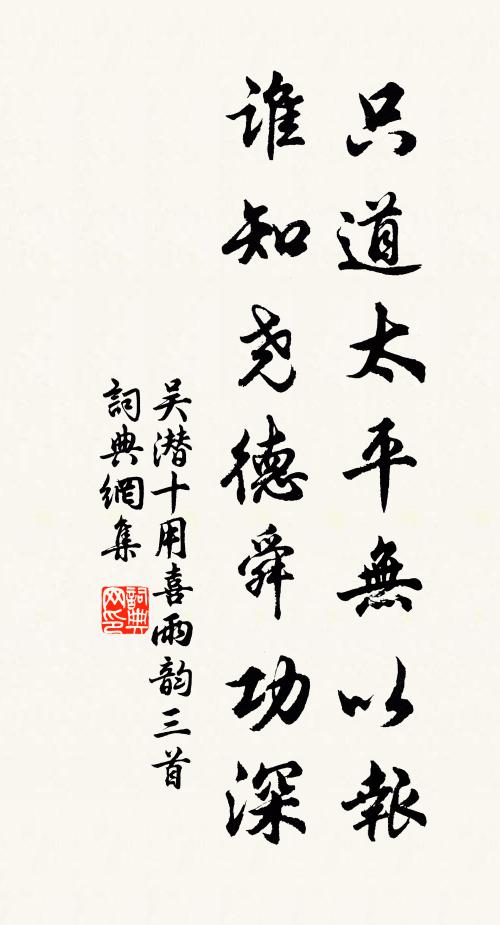 只道太平無以報
谁知尧德舜功深
吴潜十用喜雨韵三首
詞典網集
詞典网印